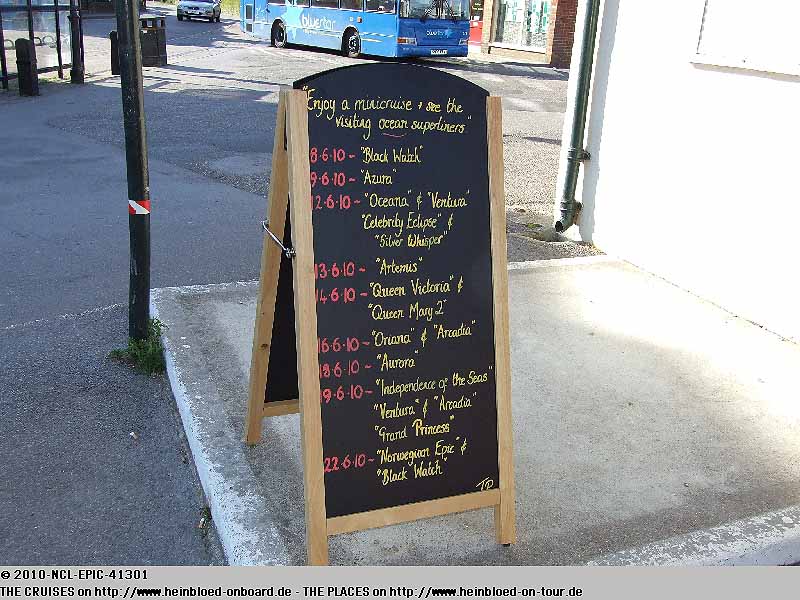 bluestar
"Enjoy a minicruise + see the
visiting ocean superliners"
8·6·10 ~ "Black Watch"
9·6·10 ~ "Azura"
12·6·10 ~ "Oceana" & "Ventura"
"Celebrity Eclipse" &
"Silver Whisper"
13·6·10 ~ "Artemis"
14·6·10 ~ "Queen Victoria" &
"Queen Mary 2"
16·6·10 ~ "Oriana" & "Arcadia"
18·6·10 ~ "Aurora"
19·6·10 ~ "Independence of the Seas"
"Ventura" & "Arcadia"
"Grand Princess"
22·6·10 ~ "Norwegian Epic" &
"Black Watch"
© 2010-NCL-EPIC-41301
THE CRUISES on http://www.heinbloed-onboard.de - THE PLACES on http://www.heinbloed-on-tour.de